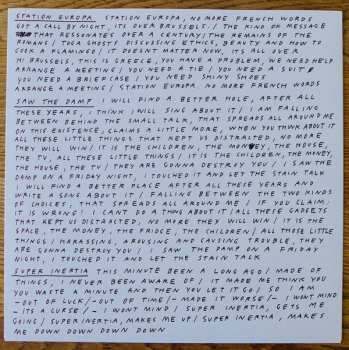 STATION EUROPA STATION EUROPA, NO MORE FRENCH WORDS
GOT A CALL BY NIGHT, IT'S OVER BRUSSELS / THE KIND OF MESSAGE
THAT RESSONATES OVER A CENTURY; THE REMAINS OF THE
ROMANS / TOGA GHOSTS DISCUSSING ETHICS, BEAUTY AND HOW TO
COOK A FLAMINGO / IT DOESNT MATTER NOW, ITS ALL OVER
HI BRUSSELS, THIS IS GREECE, YOU HAVE A PROBLEM, WE NEED HELP
ARRANGE A MEETING / YOU NEED A TIE / YOU NEED A SUIT &
YOU NEED A BRIEFCASE / YOU NEED SHINY SHOES
ARRANGE A MEETING / STATION EUROPA, NO MORE FRENCH WORDS
SAW THE DAMP I WILL FIND A BETTER HOLE, AFTER ALL
THESE YEARS, I THINK I WILL SING ABOUT IT / I AM FALLING
BETWEEN BEHIND THE SMALL TALK, THAT SPREADS ALL AROUND ME
ON THIS EXISTENCE, CLAIMS A LITTLE MORE, WHEN YOU THINK ABOUT IT
ALL THESE LITTLE THINGS THAT KEPT US DISTRACTED, NO MORE
THEY WILL WIN / IT IS THE CHILDREN, THE MONEY, THE HOUSE,
THE TV, ALL THESE LITTLE THINGS / IT IS THE CHILDREN, THE MONEY,
THE HOUSE, THE TV / THEY ARE GONNA DESTROY YOU / I SAW THE
DAMP ON A FRIDAY NIGHT, I TOUCHED IT AND LET THE STAIN TALK
I WILL FIND A BETTER PLACE AFTER ALL THESE YEARS AND
WRITE A SONG ABOUT IT / FALLING BETWEEN THE TWO KINDS
OF CHOICES, THAT SPREADS ALL AROUND ME / IF YOU CLAIM;
IT IS WRONG! I CAN'T DO A THING ABOUT IT / ALL THESE GADGETS
THAT KEPT US DISTRACTED, NO MORE THEY WILL WIN / IT IS THE
SPACE, THE MONEY, THE FRIDGE, THE CHILDREN / ALL THOSE LITTLE
THINGS / HARASSING, AROUSING AND CAUSING TROUBLE, THEY
ARE GONNA DESTROY YOU / I SAW THE DAMP ON A FRIDAY
NIGHT, I TOUCHED IT AND LET THE STAIN TALK
SUPER INERTIA THIS MINUTE BEEN A LONG AGO / MADE OF
THINGS, I NEVER BEEN AWARE OF / IT MADE ME THINK YOU
YOU WASTE A MINUTE AND THEN YOU LET IT GO / SO I AM
-OUT OF LUCK / -OUT OF TIME / -MADE IT WORSE / - I WONT MIND
- ITS A CURSE / - I WONT MIND / SUPER INERTIA, GETS ME
GOING / SUPER INERTIA, MAKES ME UP / SUPER INERTIA, MAKES
ME DOWN DOWN DOWN DOWN